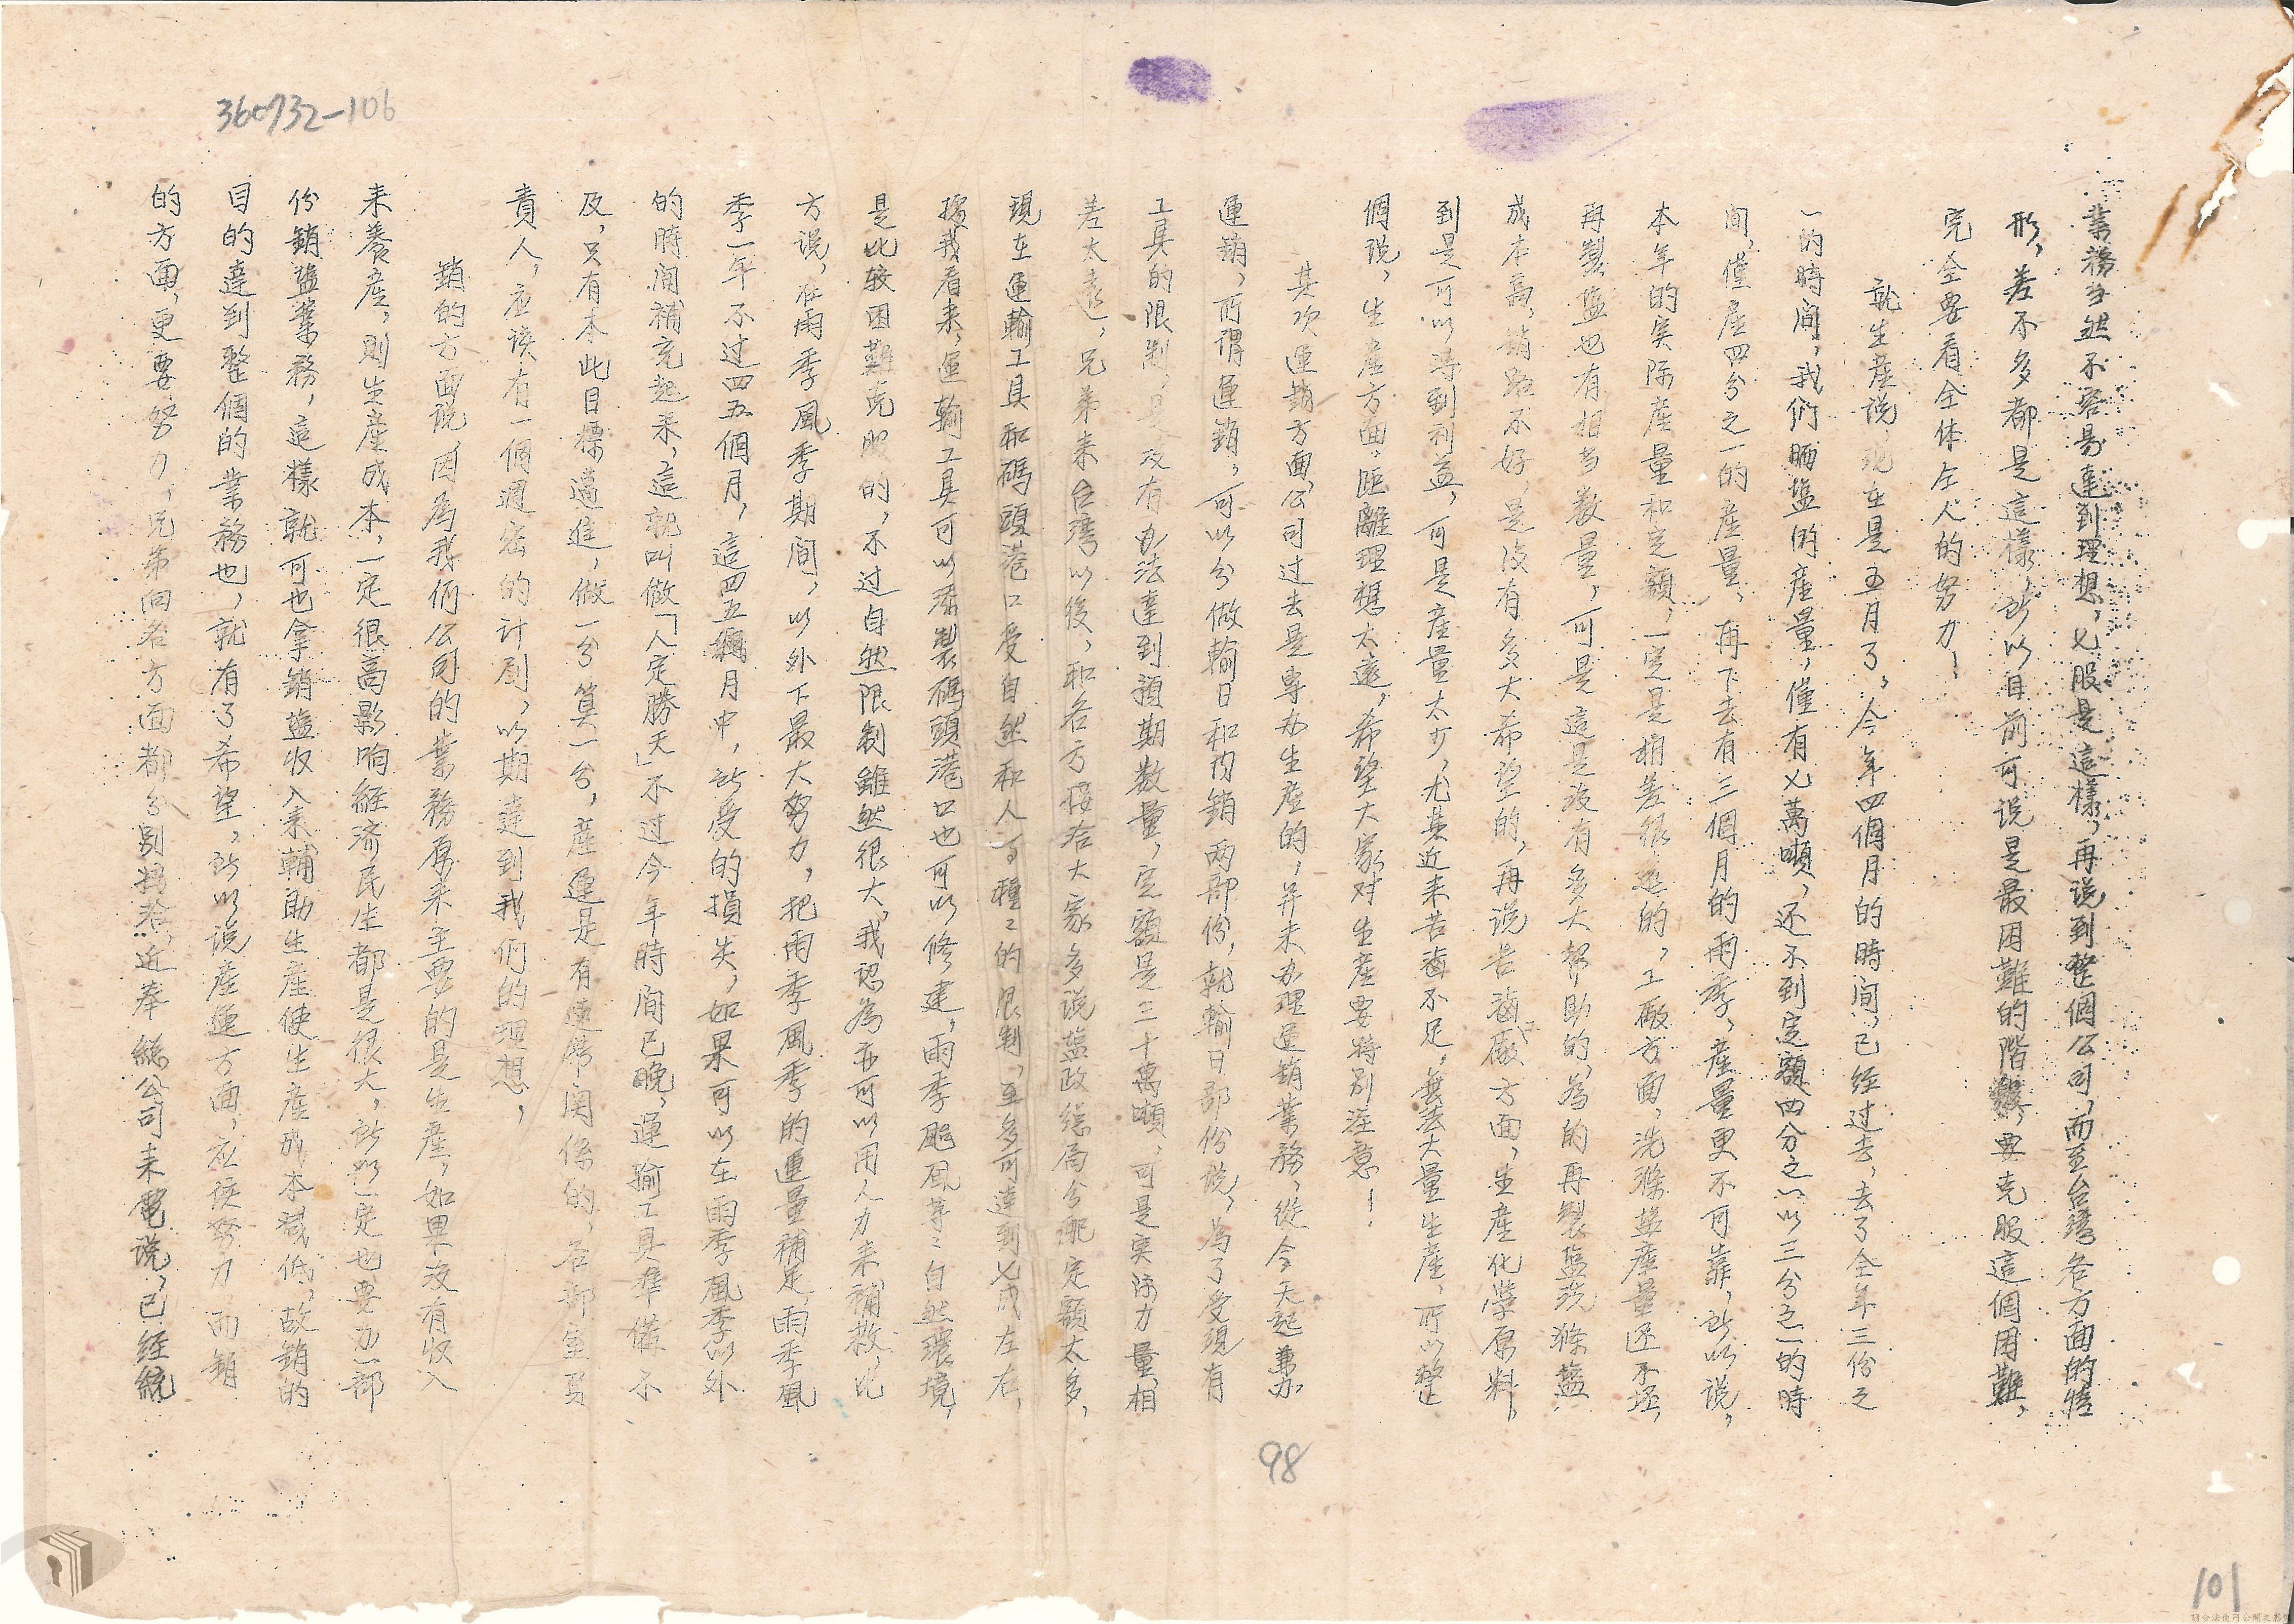 360732-106
業務当然不容易達到理想，乂服是這樣，再说到整個公司，而至台灣各方面的情
形，差不多都是這樣，所以目前可说是最困難的階段，要克服這個困難，
完全要看全体仝人的努力！
就生産说，現在是五月了，今年四個月的時间，已经过去，去了全年三份之
一的時间，我们晒塩的産量，僅有乂萬噸，还不到定額四分之一，以三分之一的時
间，僅産四分之一的産量，再下去有三個月的雨季，産量更不可靠，所以说，
本年的实际産量和定額，一定是相差很远的，工廠方面，洗滌塩産量还不坯，
再製塩也有相当数量，可是這是沒有多大帮助的，為的再製塩洗滌塩
成本高，銷路不好，是沒有多大希望的，再说苦滷廠方面，生産化學原料，
到是可以得到利益，可是産量太少，尤其近来苦滷不足，無法大量生産，所以整
個说，生産方面，距離理想太遠，希望大家对生産要特别注意！
其次運銷方面，公司过去是專办生産的，并未办理運銷業務，從今天起兼办
運銷，所謂運銷，可以分做輸日和内銷两部份，就輸日部份说，為了受現有
工具的限制，是沒有办法達到預期数量，定額是三十萬噸，可是実际力量，相
差太遠，兄弟来台灣以後，和各方接洽大家多说塩政總局分配定額太多，
現在運輸工具和碼頭港口受自然和人为種々的限制，至多可達到乂成左右，
據我看来，運輸工具可以添製碼頭港口也可以修建，雨季颱風等々自然環境，
是比较困難克服的，不过自然限制雖然很大，我認為亦可以用人力来補救，比
方说，在雨季風季期间，以外下最大努力，把雨季風季的運量補足，雨季風
季一年不过四五個月，這四五個月中，所受的損失，如果可以在雨季風季以外
的時间補充起来，這就叫做「人定勝天」不过今年時间已晚，運輸工具準備不
及，只有本此目標邁進，做一分算一分，産運是有連帶関係的，各部室負
責人，应该有一個週密的计劃，以期達到我们的理想，
銷的方面说，因為我们公司的業務原来主要的是生産，如果沒有收入
来養産，則生産成本，一定很高影响経济民生都是很大，所以一定也要办一部
份銷塩業務，這樣就可也拿銷塩收入来輔助生産使生産成本減低，故銷的
目的達到整個的業務也，就有了希望，所以说産運方面，应该努力而銷
的方面，更要努力，兄弟向各方面都分别接洽，近奉總公司来電说，已经統
98
101